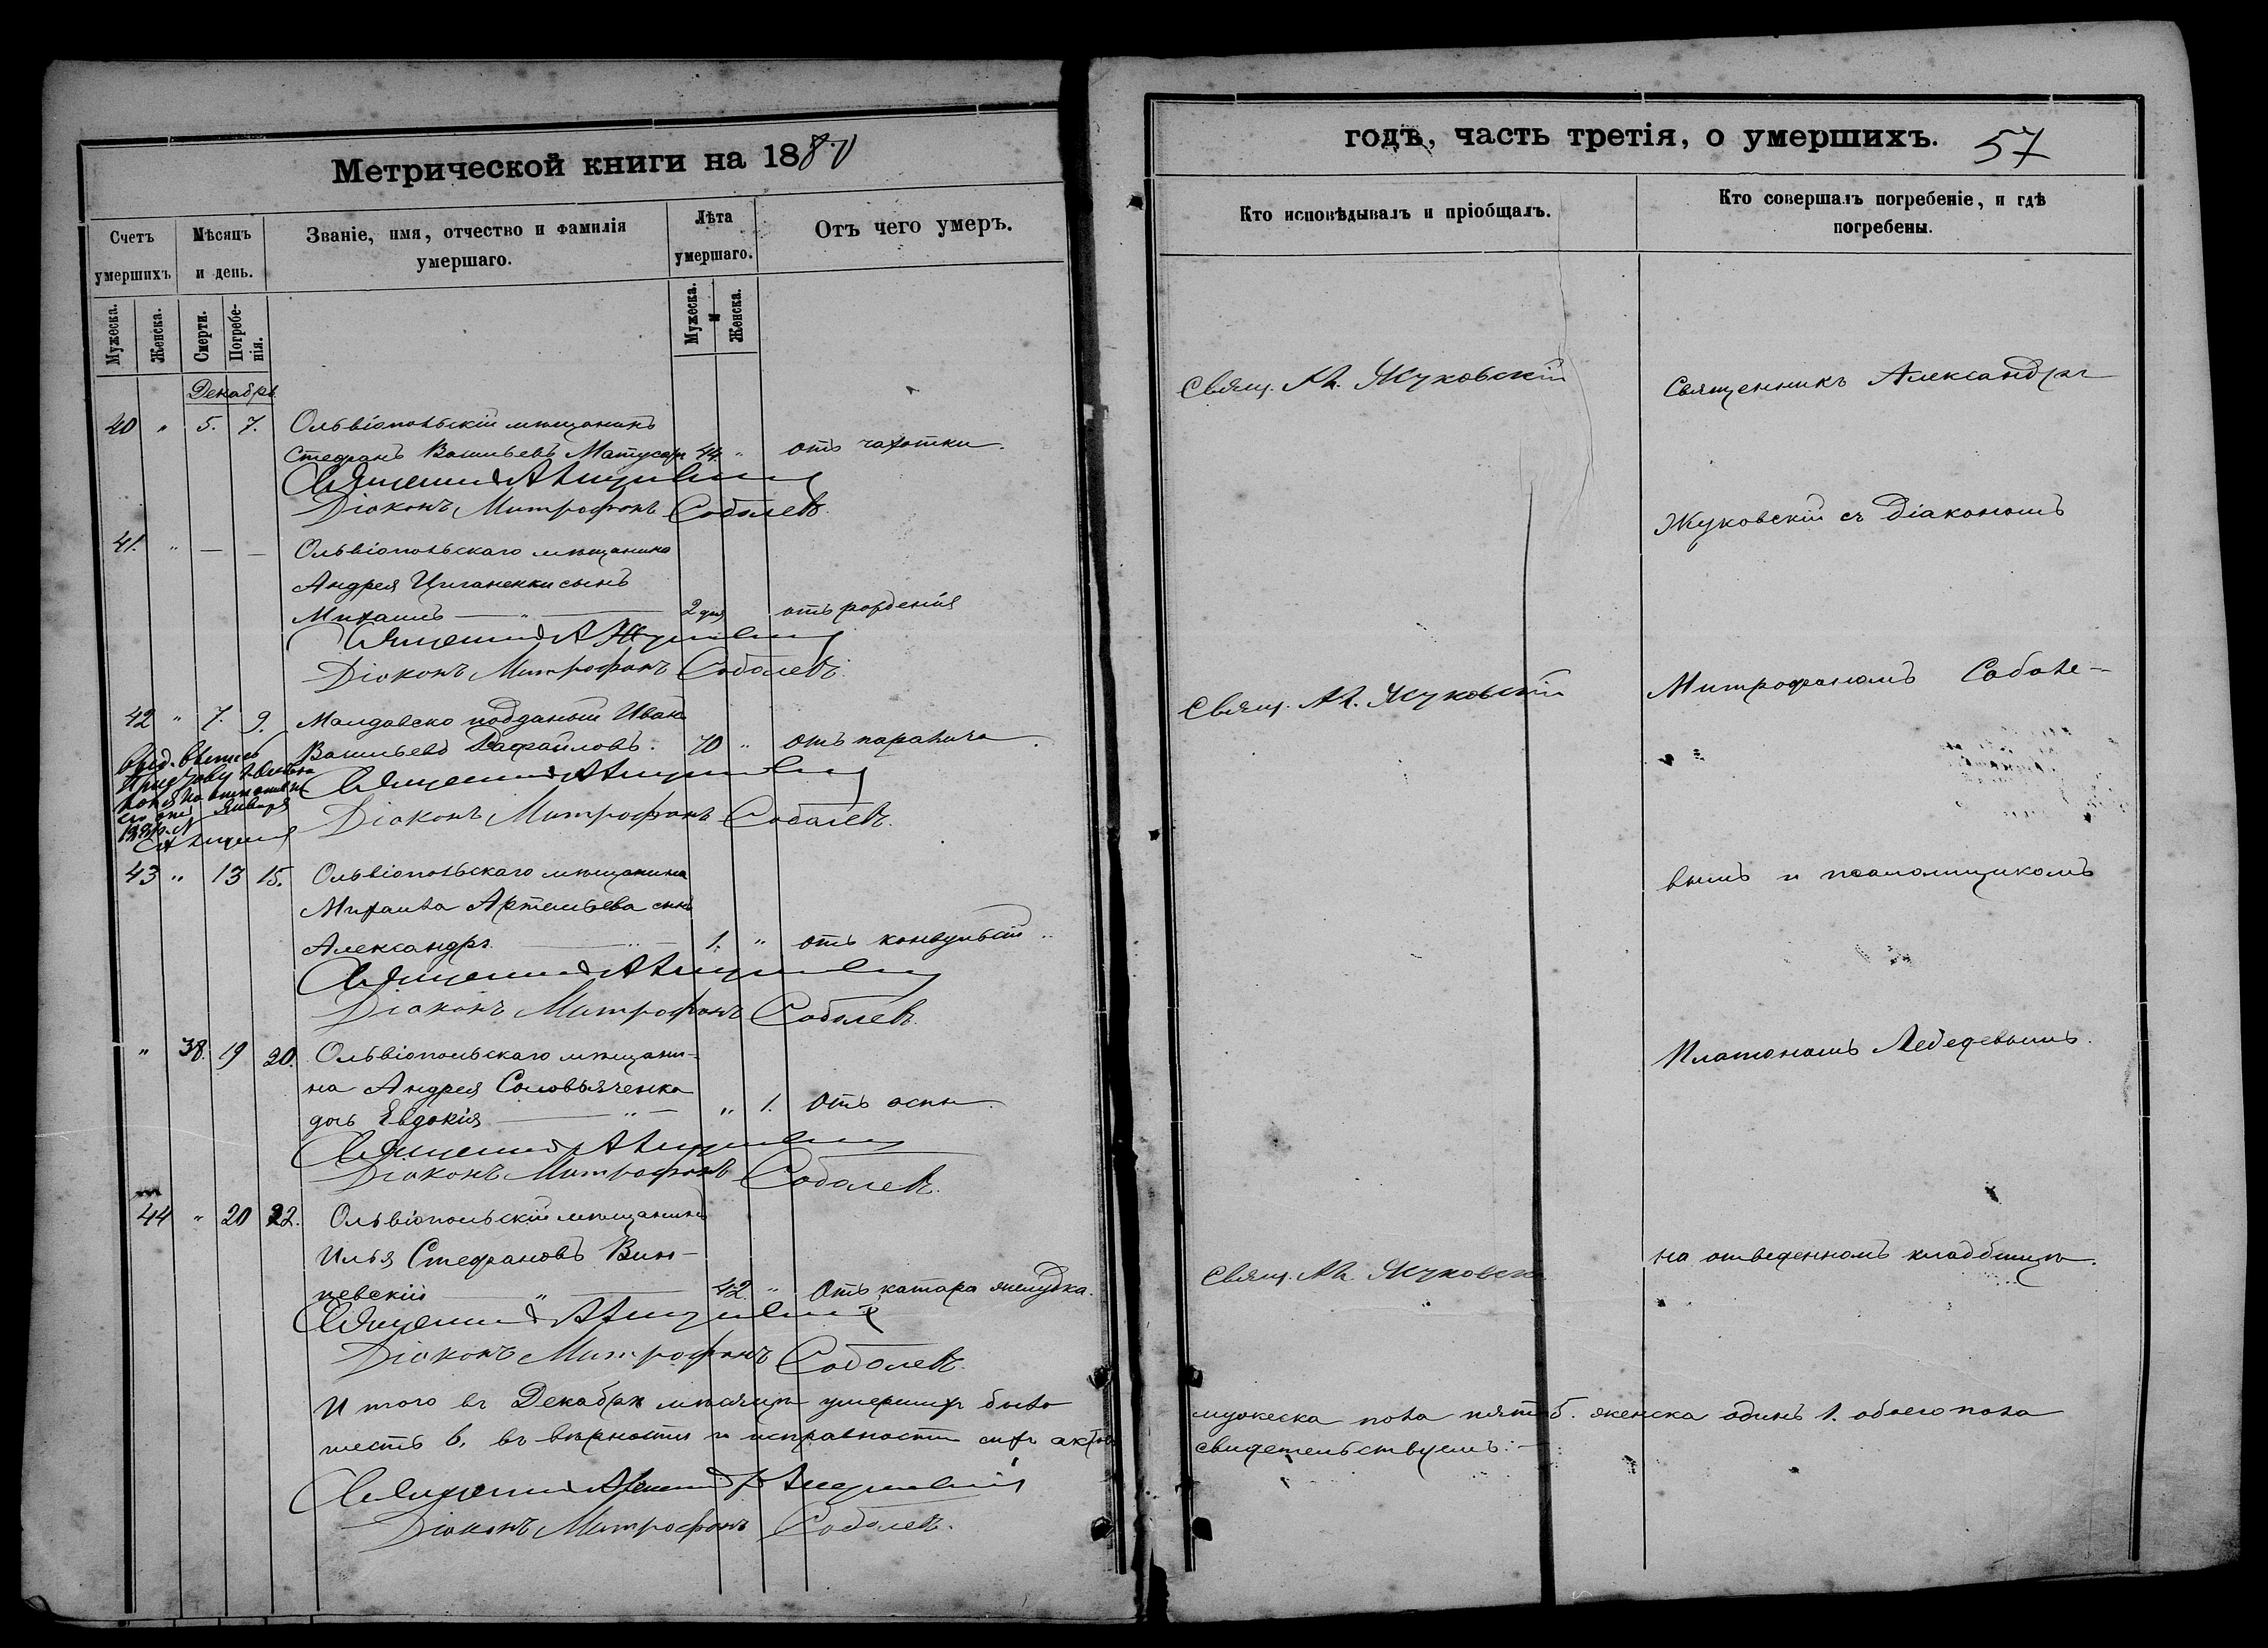 Метрической книги на 1880
Счетъ умершихъ
Мѣсяцъ и день.
Званіе, имя, отчество и фамилія умершаго.
Лѣта умершаго.
Отъ чего умеръ.
Мужеска.
Женска.
Смерти.
Погребенія.
Мужеска.
Женска.
Декабрь
40 " 5. 7. Ольвіопольскій мѣщанинъ
Стефанъ Васильевъ Матусаръ 44. " отъ чахотки.
Священникъ А Жуковскій
Діаконъ Митрофанъ Соболевъ.
41. " — — Ольвіопольскаго мѣщанина
Андрея Циганенки сынъ
Михаилъ — " — 2 дня отъ рожденія
Священникъ А Жуковскій
Діаконъ Митрофанъ Соболевъ.
42 " 7. 9. Молдавско подданый Иванъ
Васильевъ Рафаиловъ. 70 " отъ паралича.
Священникъ А Жуковскій
Діаконъ Митрофанъ Соболевъ.
43 " 13 15. Ольвіопольскаго мѣщанина
Михаила Артемьева сынъ
Александръ — " — 1. " отъ конвульсій.
Священникъ А Жуковскій
Діаконъ Митрофанъ Соболевъ.
" 38. 19 20. Ольвіопольскаго мѣщани-
на Андрея Соловьяченка
дочь Евдокія — " — " 1. Отъ оспы.
Священникъ А Жуковскій
Діаконъ Митрофанъ Соболевъ.
44 " 20 22. Ольвіопольскій мѣщанинъ
Илья Стефановъ Виш-
невскій — " — 42. " Отъ катара желудка.
Священникъ А Жуковскій
Діаконъ Митрофанъ Соболевъ.
И того въ Декабрѣ мѣсяцѣ умершихъ было
шесть 6. въ вѣрности и исправности сихъ актовъ
Священникъ Александръ Жуковскій
Діаконъ Митрофанъ Соболевъ.
годъ, часть третія, о умершихъ. 57
Кто исповѣдывалъ и пріобщалъ.
Кто совершалъ погребеніе, и гдѣ погребены.
Свящ. Ал. Жуковскій
Священникъ Александръ
Жуковскій съ Діакономъ
Свящ. Ал. Жуковскій
Митрофаномъ Соболе-
вымъ и псаломщикомъ
Платономъ Лебедевымъ.
Свящ. Ал. Жуковск
на отведенномъ кладбищѣ.
мужеска пола пять 5. женска одинъ 1. обоего пола
свидетельствуемъ: —